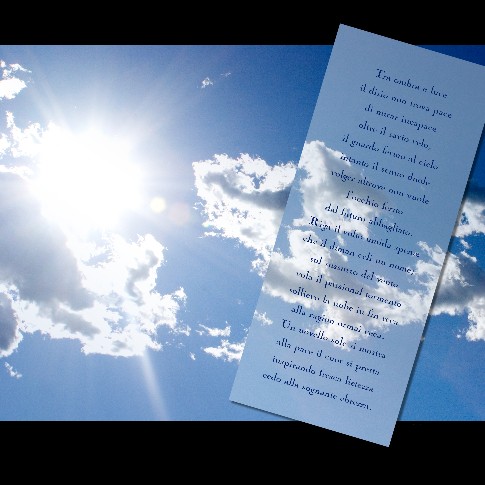 Tra ombra e luce
il disio non trova pace
di mirar incapace
oltre il savio velo,
il guardo fermo al cielo
intanto il senso duole
volger altrove non vuole
l'occhio ferito
dal futuro abbagliato.
Riga il volto umida speme
che il diman celi un nome,
sul sussurro del vento
vola il passional tormento
sollievo la nube in fin reca
alla ragion ormai cieca.
Un novello sole si mostra
alla pace il cuor si prostra
inspirando fresca lietezza
cedo alla sognante ebrezza.